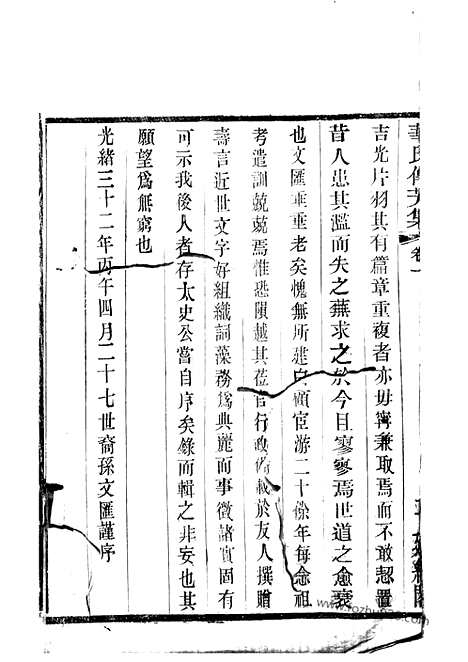 華氏傳芳集 卷一
吉光片羽其有篇章重複者亦毋寧兼取焉而不敢恝置
昔人患其濫而失之蕪求之於今目寥寥焉世道之愈衰
也文匯垂垂老矣愧無所建白顧宦游二十餘年每念祖
考遺訓兢兢焉惟恐隕越其莅官行政備載於友人撰贈
壽言近世文字好組織詞藻務為典麗而事徵諸實固有
可示我後人者存太史公嘗自序矣錄而輯之非安也其
願望為無窮也
光緒三十二年丙午四月二十七世裔孫文匯謹序